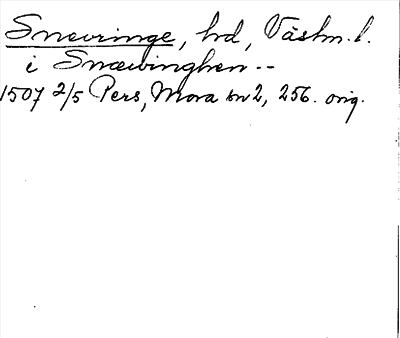 Snevringe, hd, Västm. l.
i Snæwinghen --
1507 2/5 Pers, Mora bn 2, 256. orig.